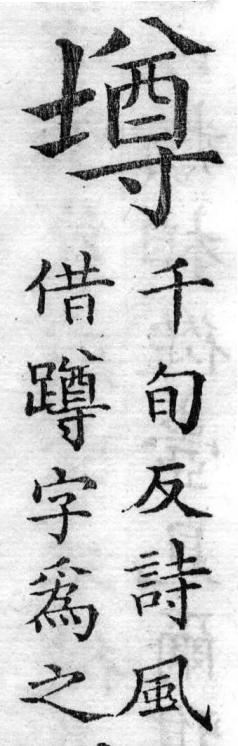 壿
千旬反詩風
借蹲字爲之